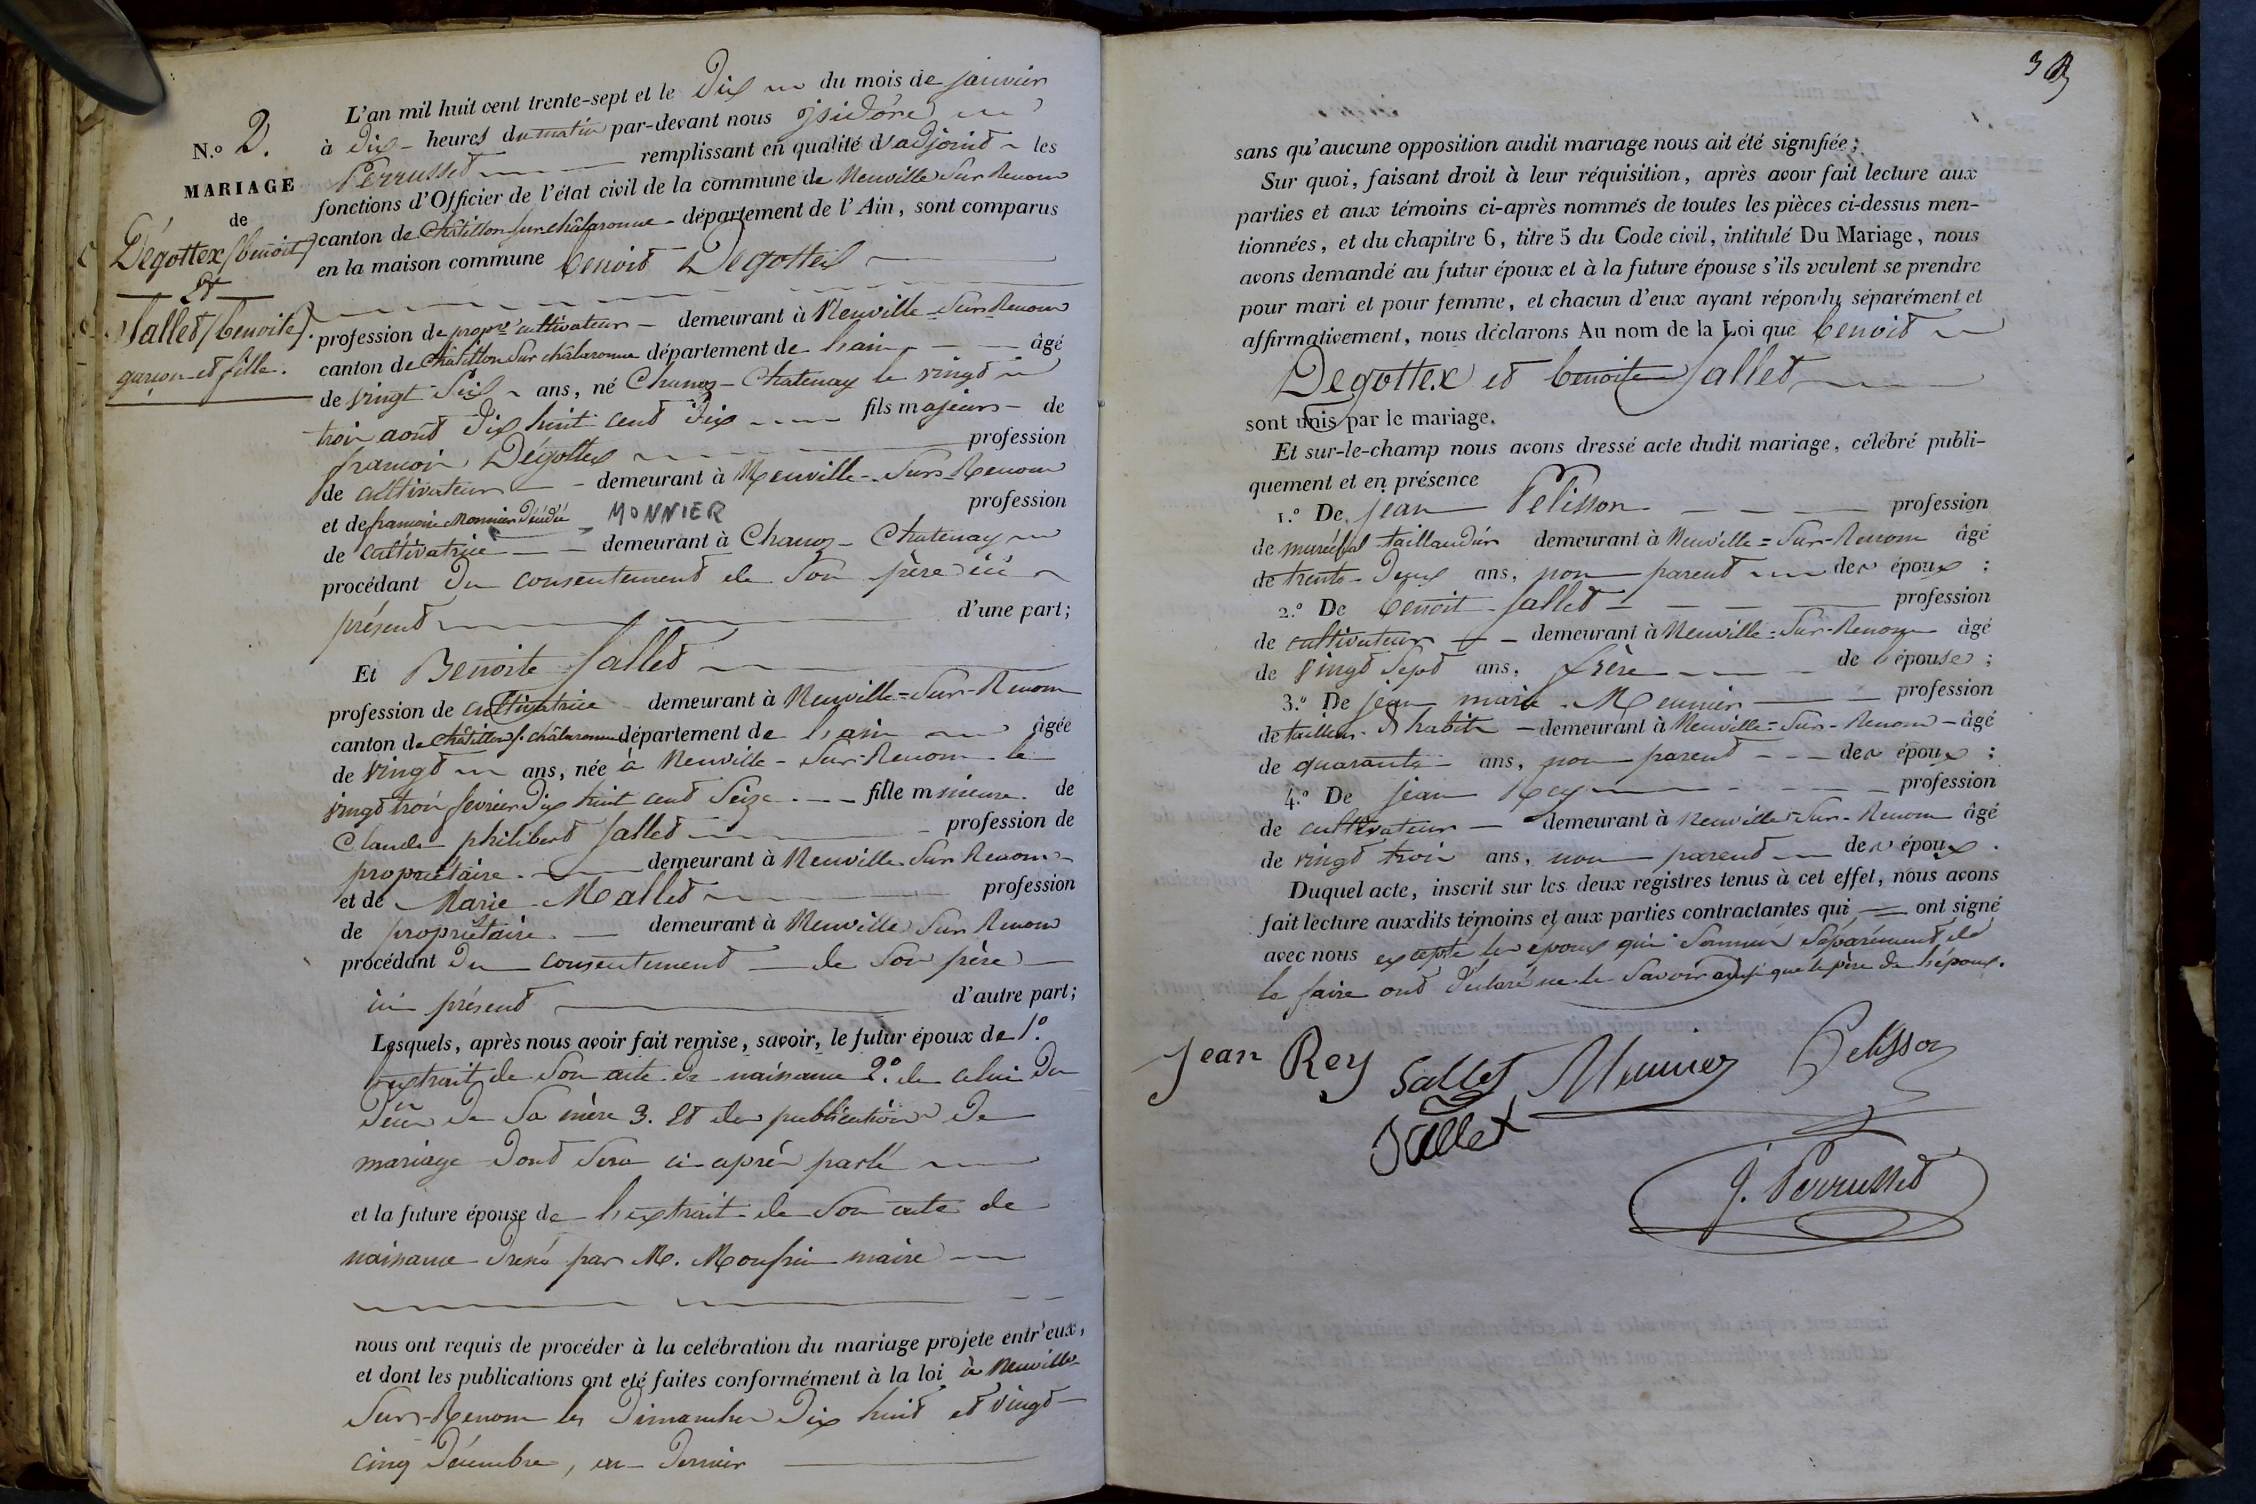 N.o 2.
MARIAGE
de
Dégottex (benoit)
Et
Sallet (benoite).
garçon et fille.
L'an mil huit cent trente-sept et le Dix du mois de janvier
à Dix heures du matin par-devant nous jsidore
Perrusset remplissant en qualité d'adjoint les
fonctions d'Officier de l'état civil de la commune de Neuville Sur Renom
canton de Châtillon sur châlaronne département de l'Ain, sont comparus
en la maison commune benoit Degottex
profession de propre cultivateur demeurant à Neuville Sur Renom
canton de Châtillon Sur châlaronne département de l'ain âgé
de vingt Six ans, né Chanoz-Chatenay le vingt
trois août Dix huit cent Dix fils majeur de
françois Dégottex profession
de cultivateur demeurant à Neuville-Sur-Renom
et de françoise Monnier Décédée MONNIER profession
de cultivatrice demeurant à Chanoz-Chatenay
procédant Du consentement de Son père ici
présent d'une part;
Et Benoite Sallet
profession de cultivatrice demeurant à Neuville=Sur-Renom
canton de Châtillon s. châlaronne département de l'ain âgée
de vingt ans, née à Neuville-Sur-Renom le
vingt trois fevrier Dix huit cent Seize fille mineure de
Claude philibert Sallet profession de
propriétaire demeurant à Neuville Sur Renom
et de Marie Mallet profession
de propriétaire demeurant à Neuville Sur Renom
procédant Du consentement de Son père
ici présent d'autre part;
Lesquels, après nous avoir fait remise, savoir, le futur époux de 1.o
l'extrait de Son acte de naissance 2.o de celui Du
Décès de Sa mère 3. Et des publications De
mariage Dont Sera ci-après parlé
et la future épouse de l'extrait de Son acte de
naissance Dressé par M. maire
nous ont requis de procéder à la celébration du mariage projeté entr'eux,
et dont les publications ont eté faites conformément à la loi à Neuville
Sur-Renom les Dimanches Dix huit et vingt
cinq Décembre, Dernier
sans qu'aucune opposition audit mariage nous ait été signifiée;
Sur quoi, faisant droit à leur réquisition, après avoir fait lecture aux
parties et aux témoins ci-après nommés de toutes les pièces ci-dessus men-
tionnées, et du chapitre 6, titre 5 du Code civil, intitulé Du Mariage, nous
avons demandé au futur époux et à la future épouse s'ils veulent se prendre
pour mari et pour femme, et chacun d'eux ayant répondu séparément et
affirmativement, nous déclarons Au nom de la Loi que benoit
Degottex et benoite Sallet
sont unis par le mariage.
Et sur-le-champ nous avons dressé acte dudit mariage, célébré publi-
quement et en présence
1.o De jean Pelisson profession
de maréchal taillandier demeurant à Neuville=Sur-Renom âgé
de trente-Deux ans, non parent des époux;
2.o De benoit Sallet profession
de cultivateur demeurant à Neuville=Sur-Renom âgé
de vingt Sept ans, frère de l'épouse;
3.o De jean marie Meunier profession
de tailleur d'habits demeurant à Neuville=Sur-Renom âgé
de quarante ans, non parent des époux;
4.o De jean Rey profession
de cultivateur demeurant à Neuville-Sur-Renom âgé
de vingt trois ans, non parent des époux.
Duquel acte, inscrit sur les deux registres tenus à cet effet, nous avons
fait lecture auxdits témoins et aux parties contractantes qui ont signé
avec nous excepté les époux qui Sommés Séparément de
le faire ont Déclaré ne le Savoir ainsi que le père De l'époux.
Jean Rey Sallet Meunier Pelisson
Sallet
J. Perrusset